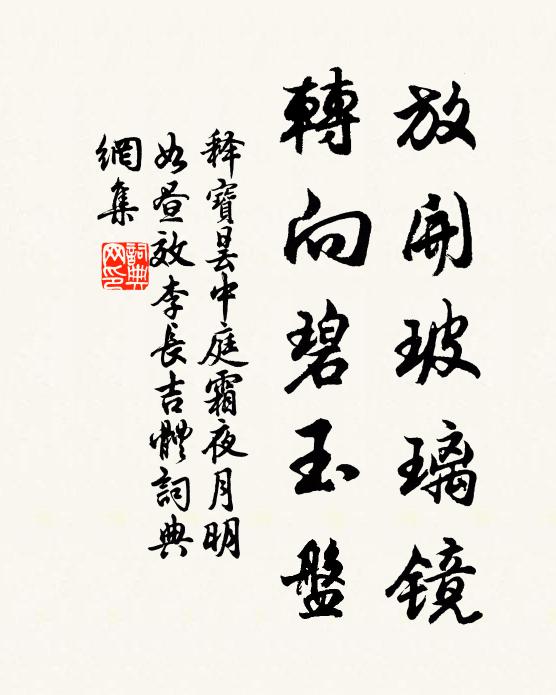 放開玻璃鏡
轉向碧玉盤
释寶曇中庭霜夜月明
如昼效李長吉體詞典
網集
詞典
网印